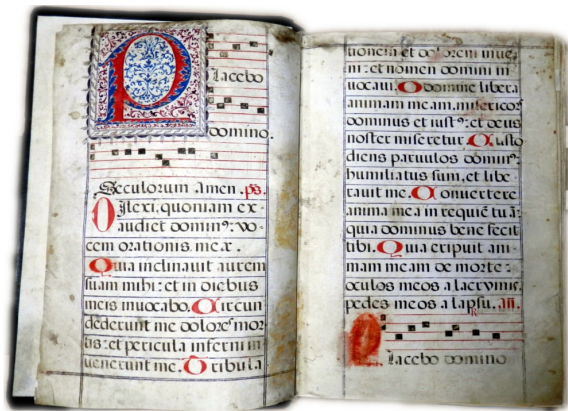 Placebo
domino.
Seculorum amen. ps.
Dilexi: quoniam ex-
audiet dominꝰ: vo-
cem orationis meæ.
Quia inclinavit aurem
suam mihi: et in diebus
meis invocabo. Circun
dederunt me dolores mor
tis: et pericula inferni in-
venerunt me. Tribula
tionem et dolorem inve
ni: et nomen domini in
vocavi. O domine libera
animam meam, misericors
dominus et iustꝰ: et deus
noster miseretur. Custo
diens parvulos dominꝰ:
humiliatus sum, et libe
ravit me. Convertere
anima mea in requiē tuā:
quia dominus bene fecit
tibi. Quia eripuit ani-
mam meam de morte:
oculos meos a lacrymis,
pedes meos a lapsu. an.
Placebo domino